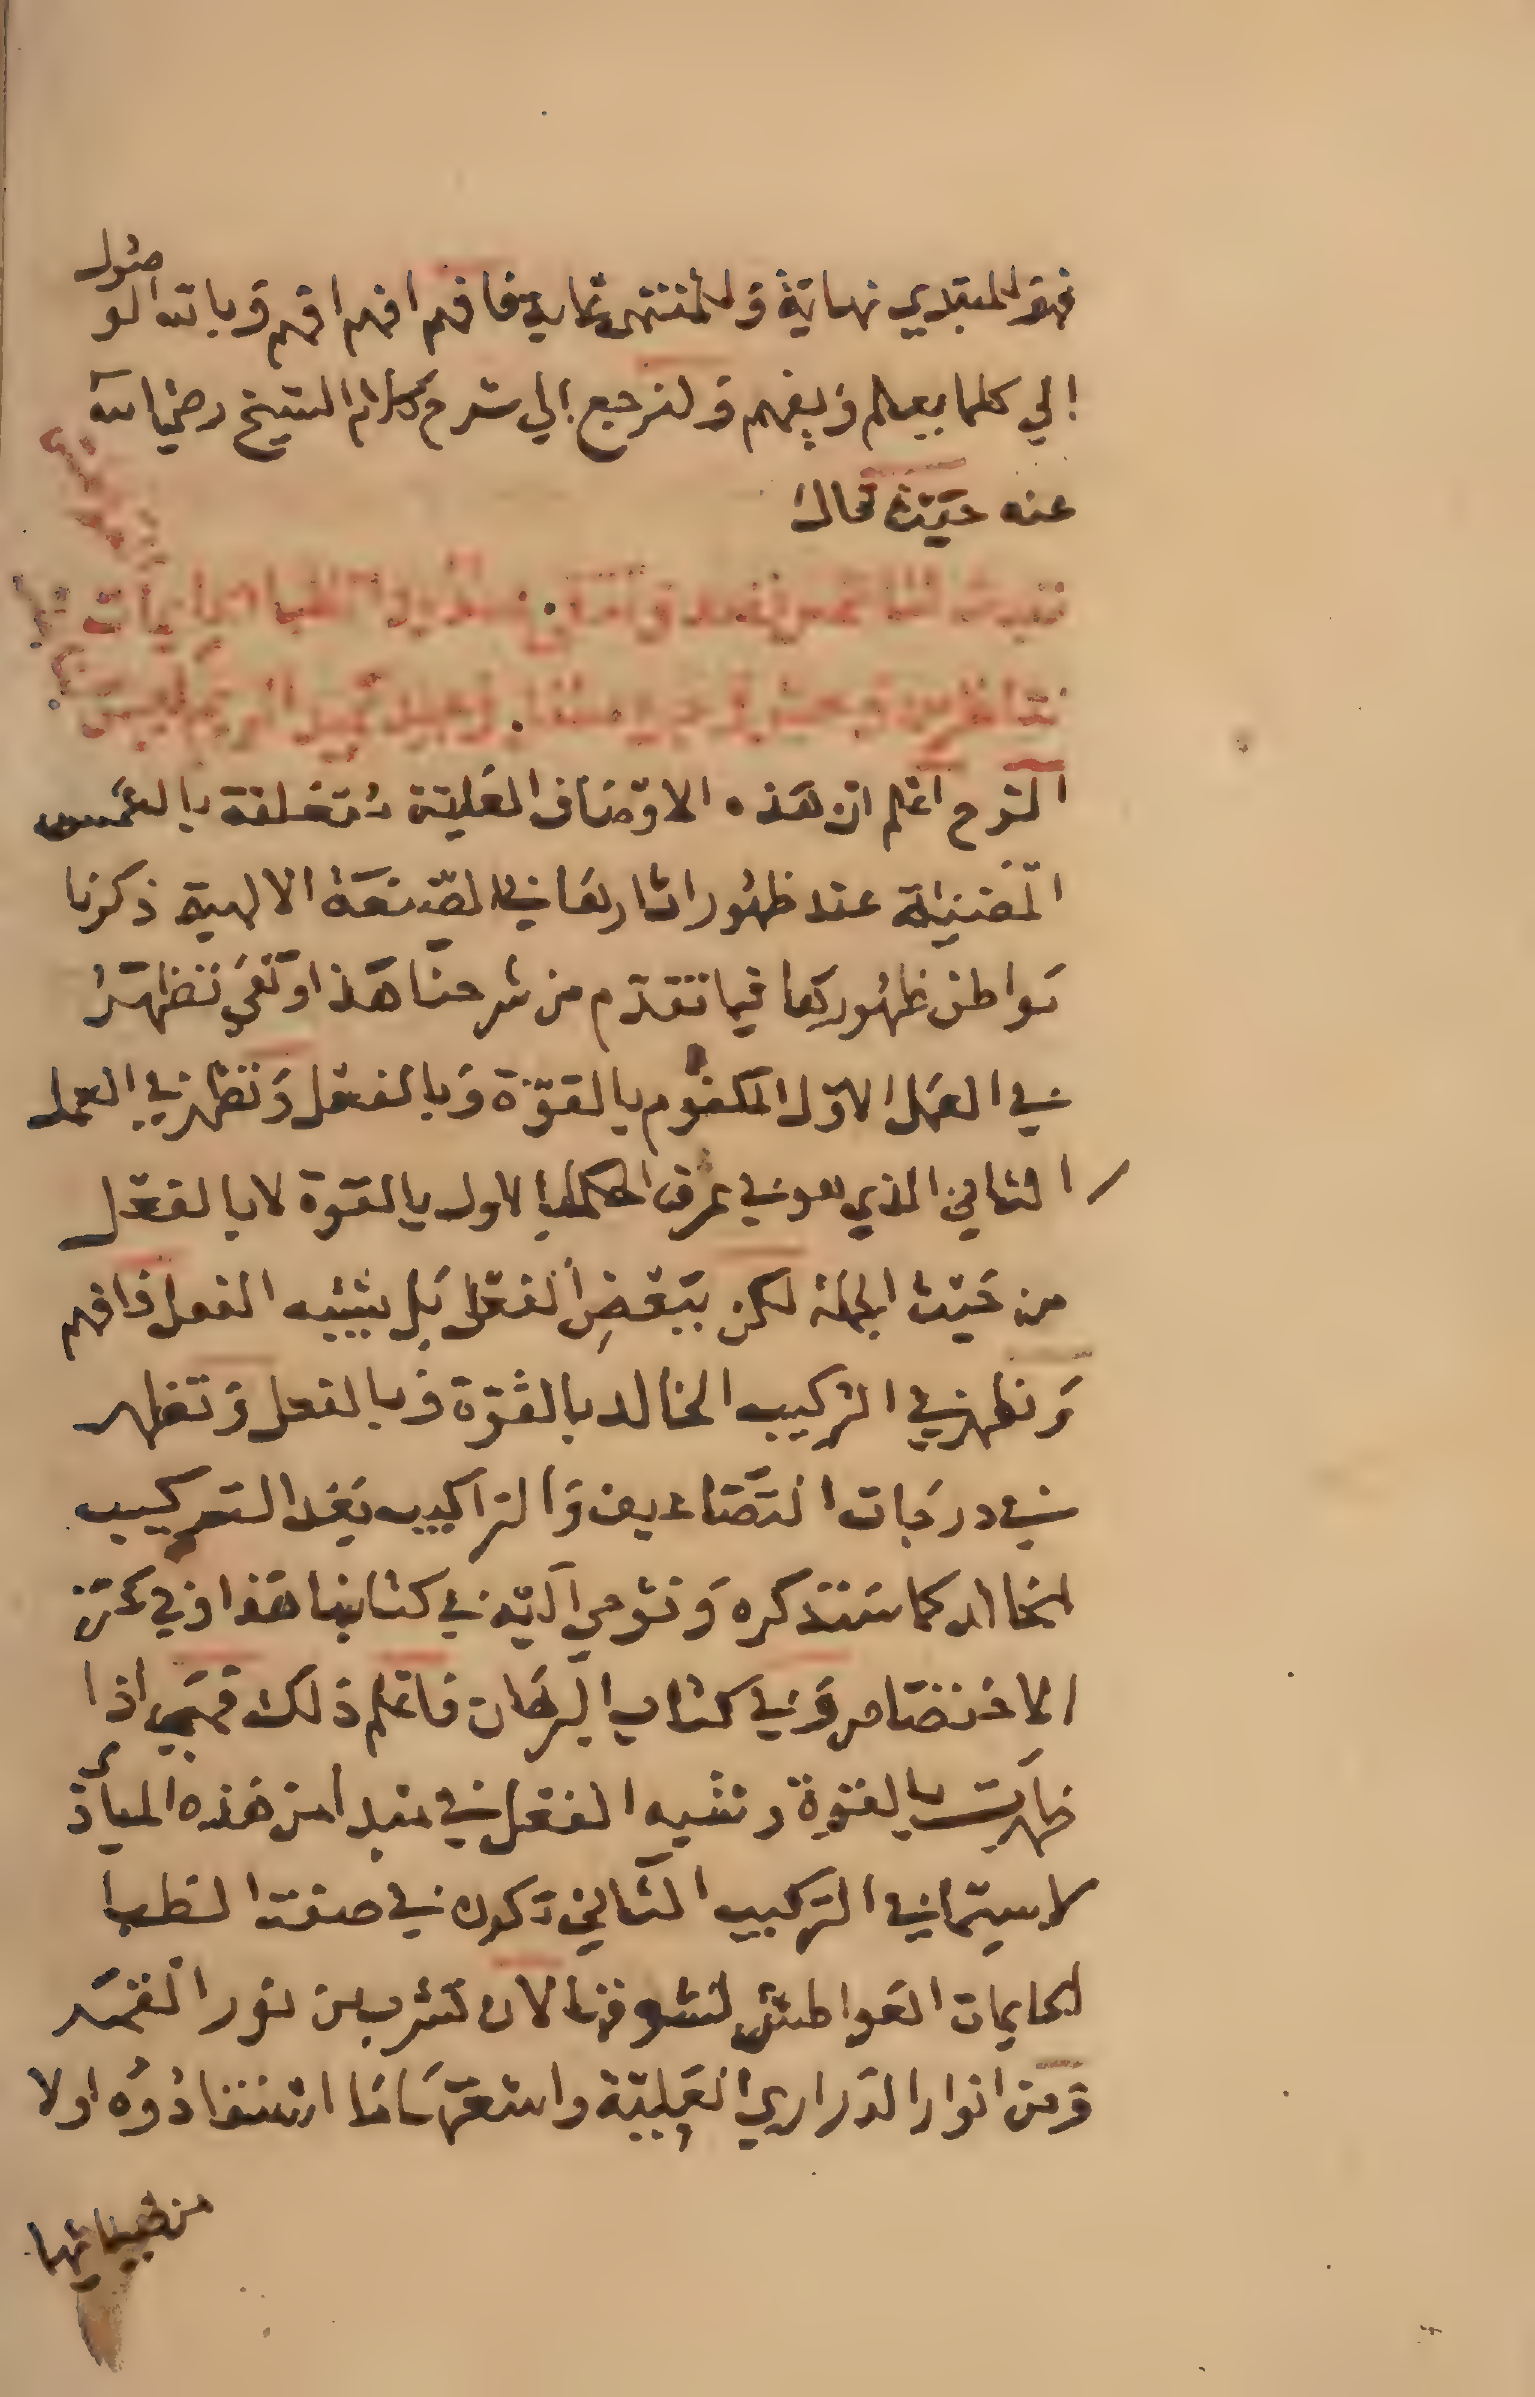 فهو للمبتدي نهاية وللمنتهي غاية فافهم افهم افهم وبالله الوصول
الي كلما يعلم ويفهم ولنرجع الي شرح كلام الشيخ رضي الله
عنه حيث قال
الشرح اعلم ان هذه الاوصاف العلية متعلقة بالشمس
المضيئة عند ظهور اثارها في الصنعة الالهية ذكرنا
مواطن ظهورها فيما تقدم من شرحنا هذا وهي تظهر
في العمل الاول المكتوم بالقوة وبالفعل وتظهر في العمل
الثاني الذي هو في عرف الحكما الاول بالقوة لا بالفعل
من حيث الجملة لكن ببعض الفعل بل بشبه الفعل فافهم
وتظهر في التركيب الخالد بالقوة وبالفعل وتظهر
في درجات التضاعيف والتراكيب بعد التركيب
الخالد كما سنذكره ونومي اليه في كتابنا هذا وفي كنز
الاختصاص وفي كتاب البرهان فاعلم ذلك فهي اذا
ظهرت بالقوة وشبه الفعل في مبدا من هذه المبادي
لا سيما في التركيب الثاني تكون في صفة الظبا
الحايمات العواطش لتشوفها لان تشرب من نور القمر
ومن انوار الدراري العلية واستعرتها ما استنفاذوه اولا
من ضيائها